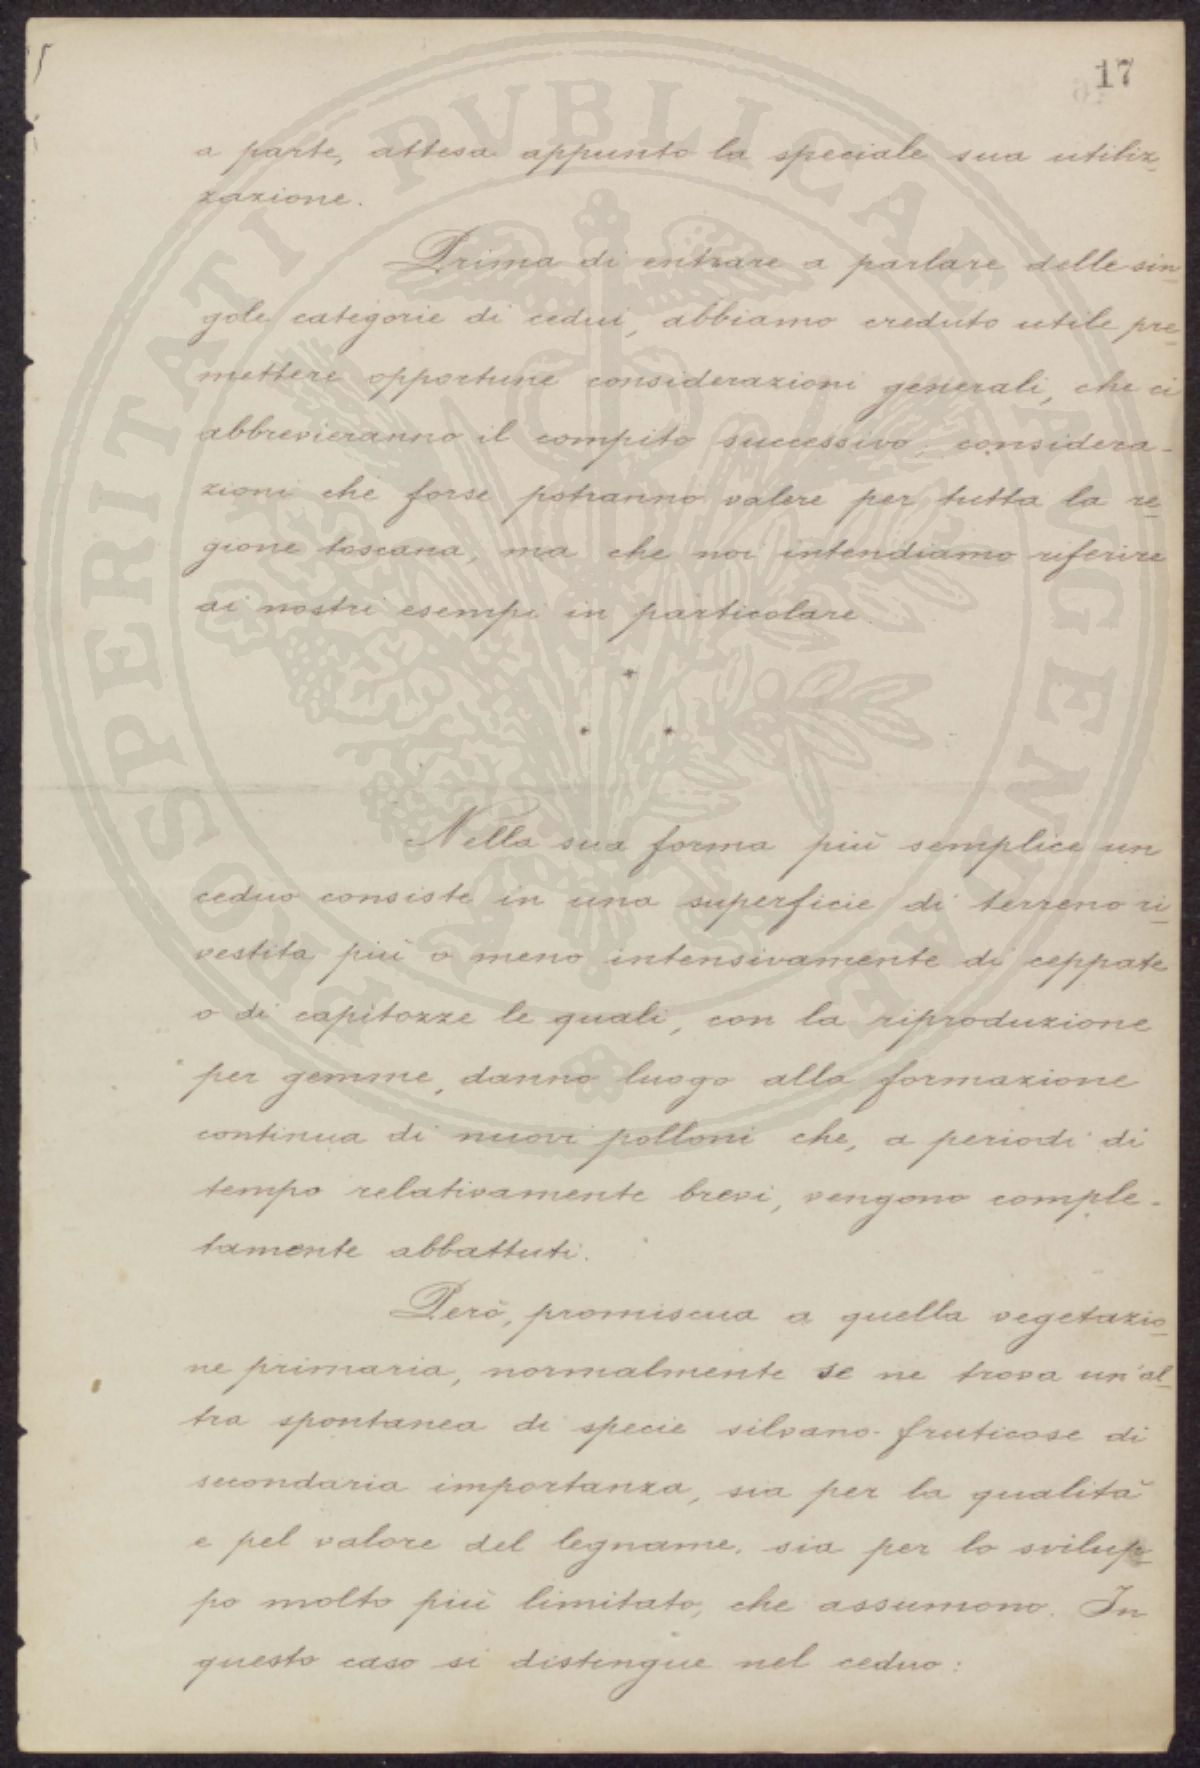 17
a parte, attesa appunto la speciale sua utiliz-
zazione.
Prima di entrare a parlare delle sin-
gole categorie di cedui, abbiamo creduto utile pre-
mettere opportune considerazioni generali, che ci
abbrevieranno il compito successivo, considera-
zioni che forse potranno valere per tutta la re-
gione toscana, ma che noi intendiamo riferire
ai nostri esempi in particolare.
Nella sua forma più semplice un
ceduo consiste in una superficie di terreno ri-
vestita più o meno intensivamente di ceppate
o di capitozze le quali, con la riproduzione
per gemme, danno luogo alla formazione
continua di nuovi polloni che, a periodi di
tempo relativamente brevi, vengono comple-
tamente abbattuti.
Però, promiscua a quella vegetazio-
ne primaria, normalmente se ne trova un'al-
tra spontanea di specie silvano-fruticose di
secondaria importanza, sia per la qualità
e pel valore del legname, sia per lo svilup-
po molto più limitato, che assumono. In
questo caso si distingue nel ceduo:
PROSPERITATI PVBLICAE AVGENDAE